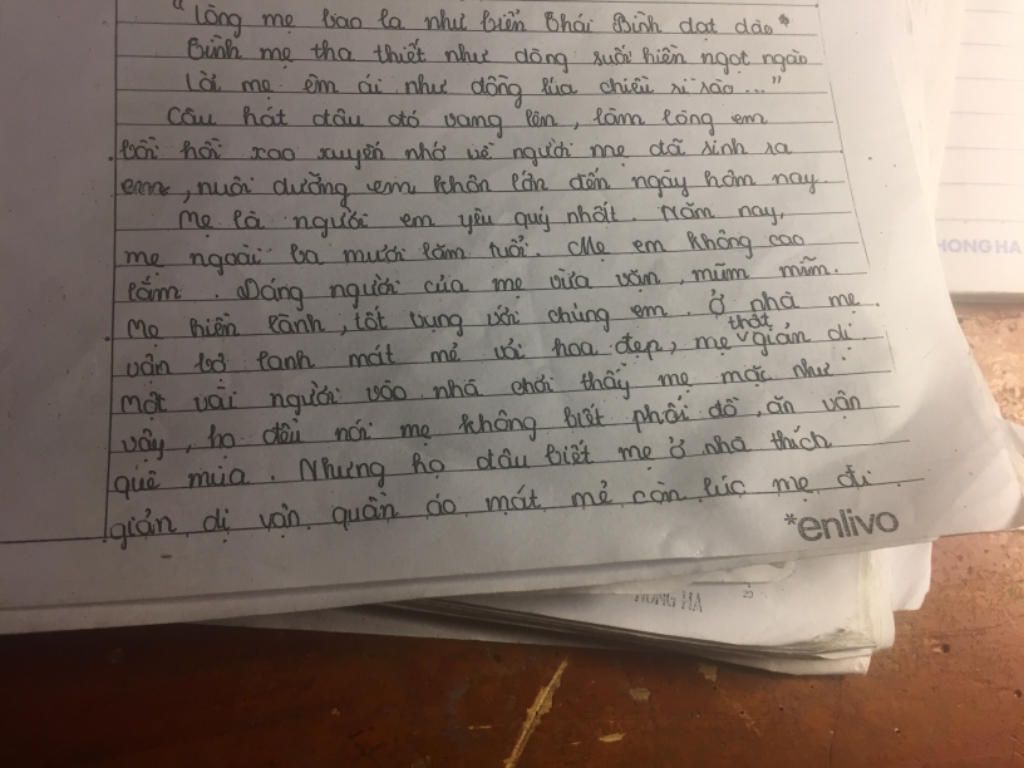 "Lòng mẹ bao la như biển Thái Bình dạt dào"
Tình mẹ tha thiết như dòng suối hiền ngọt ngào
Lời mẹ êm ái như đồng lúa chiều rì rào..."
Câu hát đâu đó vang lên, làm lòng em
bồi hồi xao xuyến nhớ về người mẹ đã sinh ra
em, nuôi dưỡng em khôn lớn đến ngày hôm nay.
Mẹ là người em yêu quý nhất. Năm nay,
mẹ ngoài ba mươi lăm tuổi. Mẹ em không cao
lắm. Dáng người của mẹ vừa vặn, mũm mĩm.
Mẹ hiền lành, tốt bụng với chúng em. Ở nhà mẹ
vận bộ lanh mát mẻ với hoa đẹp, mẹ thật giản dị.
Một vài người vào nhà chơi thấy mẹ mặc như
vậy, họ đều nói mẹ không biết phối đồ, ăn vận
quê mùa. Nhưng họ đâu biết mẹ ở nhà thích
giản dị vận quần áo mát mẻ còn lúc mẹ đi
*enlivo
HONG HA
HONG HA
20